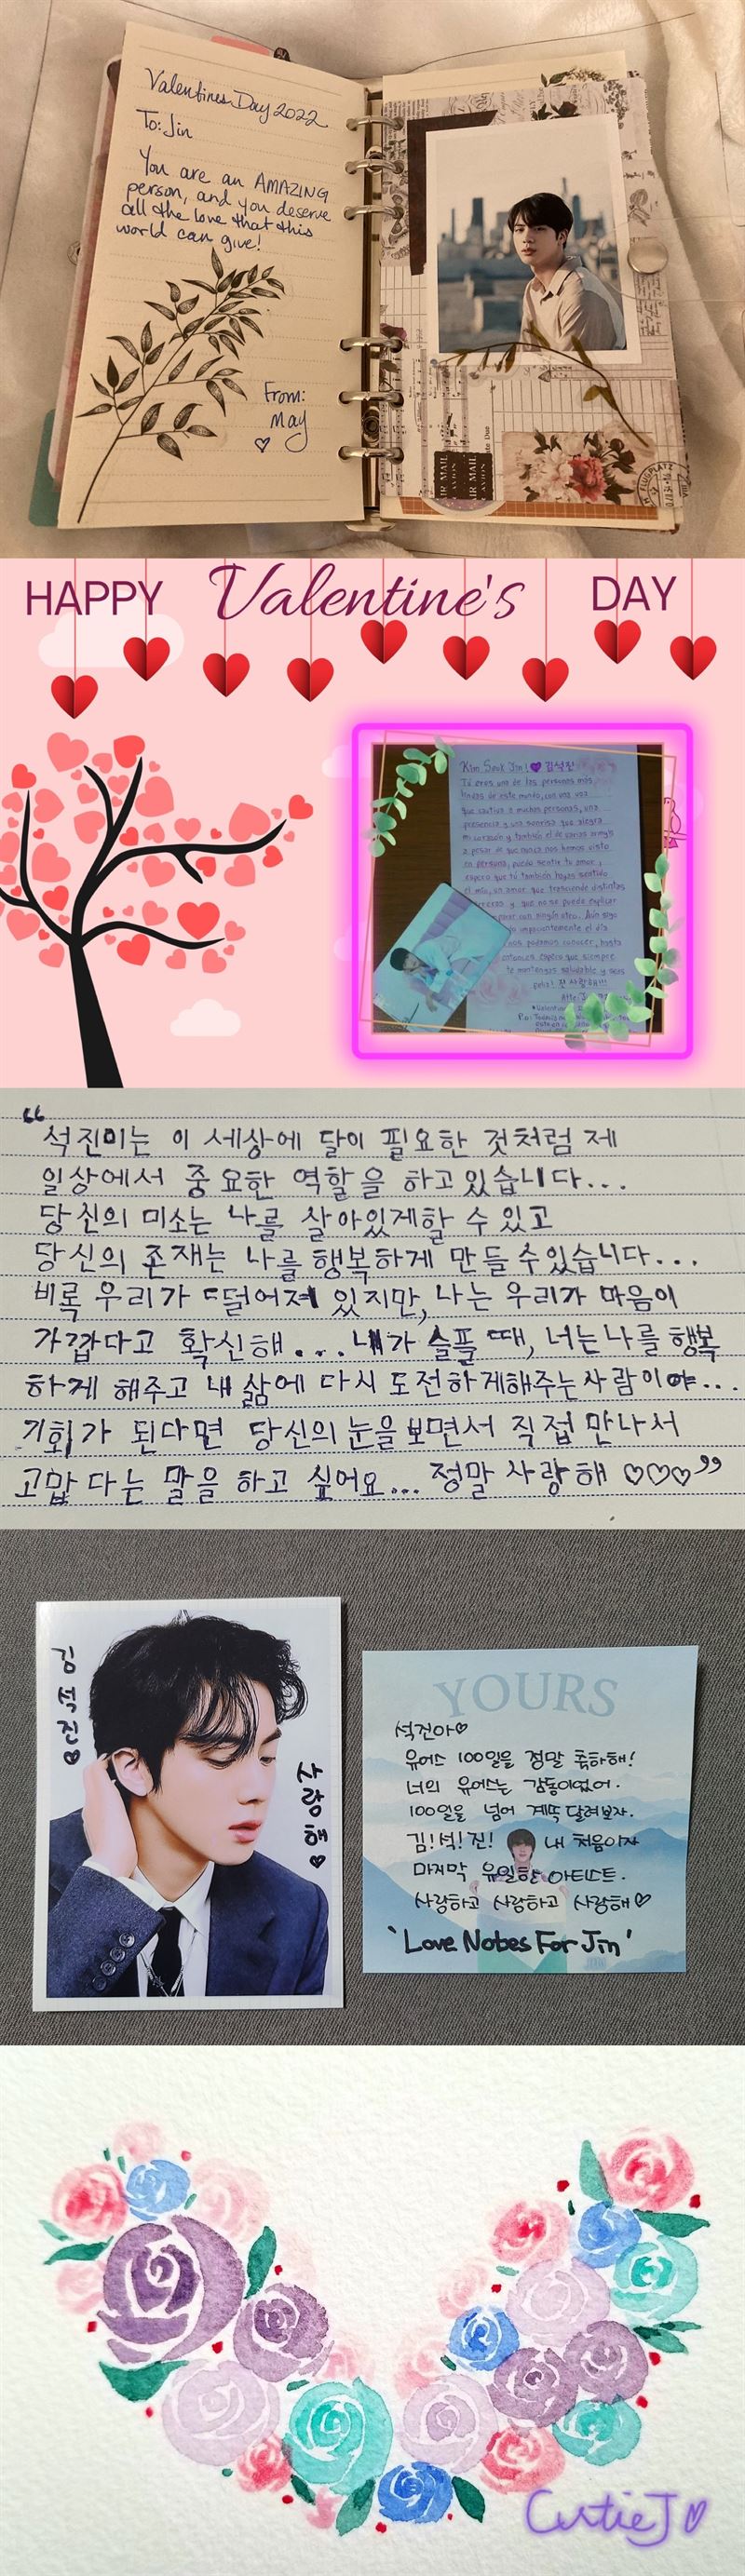 Valentines Day 2022
To: Jin
You are an AMAZING
person, and you deserve
all the love that this
world can give!
From:
May
AIR MAIL
PAR AVION
HAPPY Valentine's DAY
Kim Seok Jin! 💜 김석진
Tú eres una de las personas más
lindas de este mundo, con una voz
que cautiva a muchas personas, una
presencia y una sonrisa que alegra
mi corazón y también el de varias armys
a pesar de que nunca nos hemos visto
en persona, puedo sentir tu amor,
espero que tú también hayas sentido
el mío, un amor que trasciende distintas
y que no se puede explicar
con ningún otro. Aún sigo
impacientemente el día
nos podamos conocer, hasta
entonces espero que siempre
te mantengas saludable y seas
feliz! 전 사랑해!!!
“석진미는 이 세상에 달이 필요한 것처럼 제
일상에서 중요한 역할을 하고있습니다...
당신의 미소는 나를 살아있게할 수 있고
당신의 존재는 나를 행복하게 만들 수있습니다...
비록 우리가 떨어져 있지만, 나는 우리가 마음이
가깝다고 확신해... 내가 슬플 때, 너는 나를 행복
하게 해주고 내 삶에 다시 도전하게해주는사람이야...
기회가 된다면 당신의 눈을보면서 직접 만나서
고맙다는 말을 하고 싶어요... 정말 사랑해 ♡♡♡”
김석진♥
사랑해♥
YOURS
석진아♡
유어스 100일을 정말 축하해!
너의 유어스는 감동이었어.
100일을 넘어 계속 달려보자.
김!석!진! 내 처음이자
마지막 유일한 아티스트.
사랑하고 사랑하고 사랑해♡
'Love Notes For Jin'
CutieJ♡